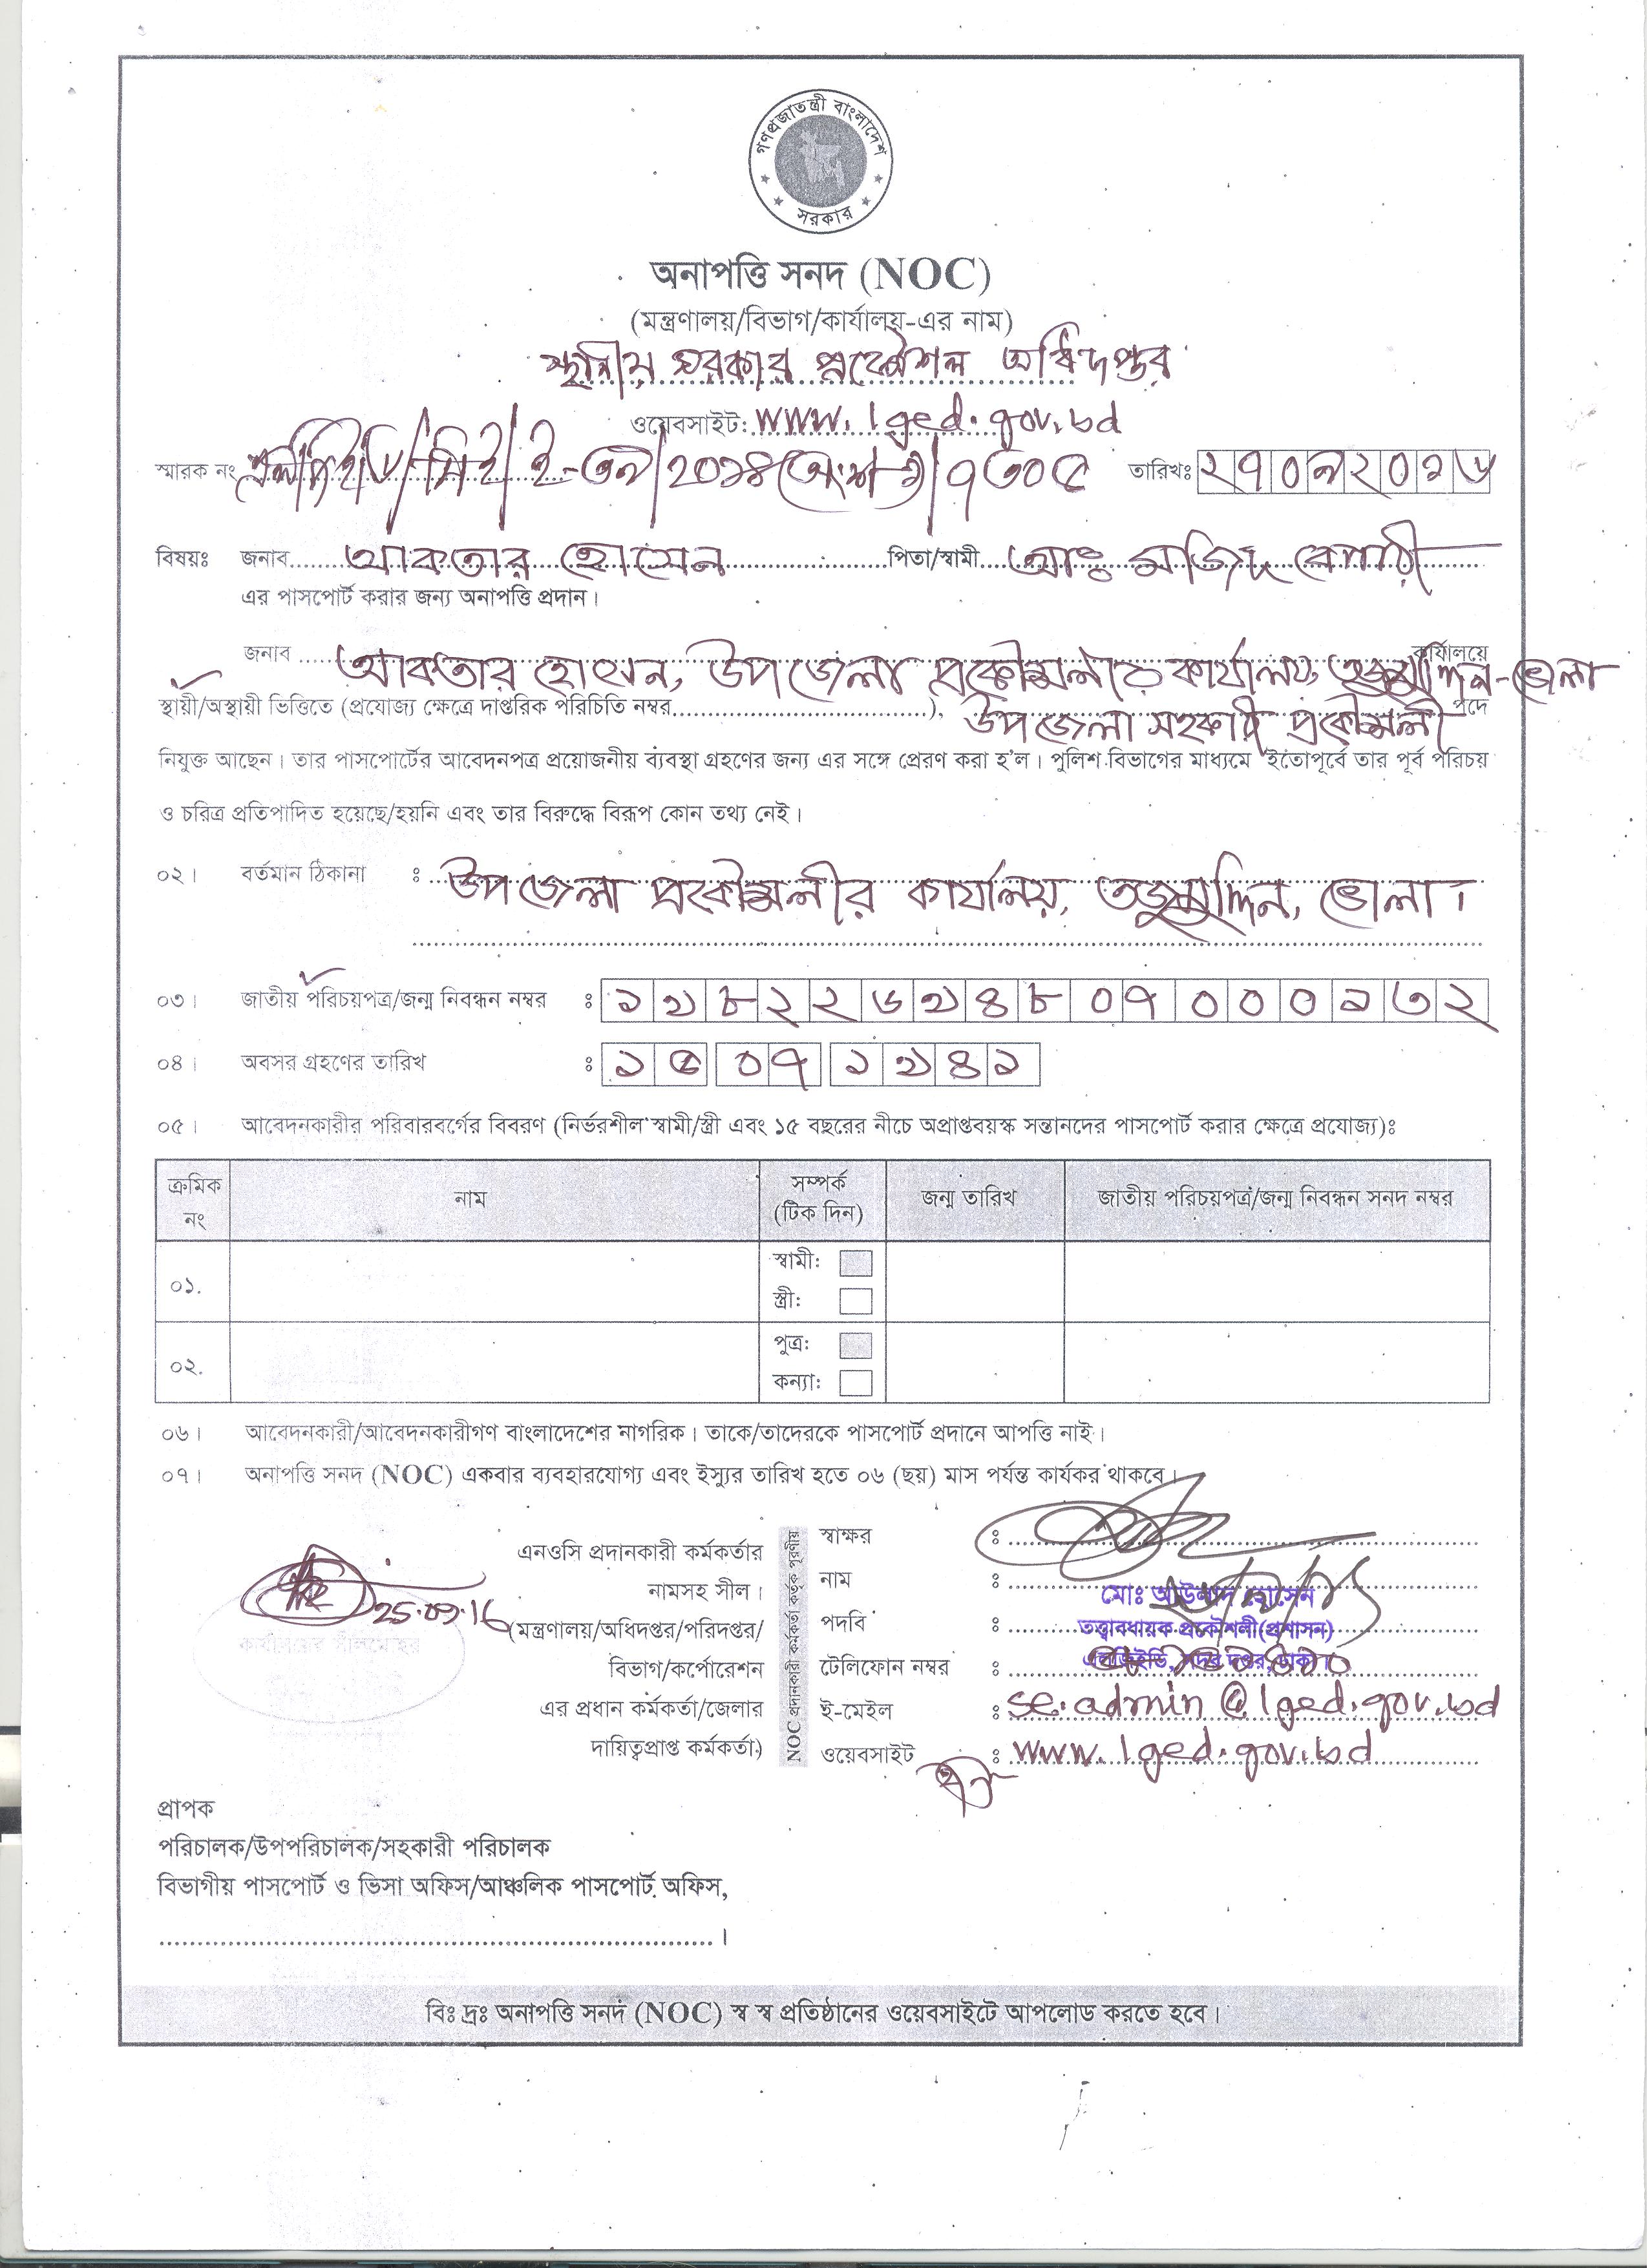 গণপ্রজাতন্ত্রী বাংলাদেশ
সরকার
অনাপত্তি সনদ (NOC)
(মন্ত্রণালয়/বিভাগ/কার্যালয়-এর নাম)
স্থানীয় সরকার প্রকৌশল অধিদপ্তর
ওয়েবসাইট: www.lged.gov.bd
স্মারক নং এলজিইডি/সিই/ই-৩৭/২০১৪(অংশ-১)/৭৩০৫ তারিখঃ ২৭০৯২০১৬
বিষয়ঃ জনাব আকতার হোসেন পিতা/স্বামী আঃ মজিদ বেপারী
এর পাসপোর্ট করার জন্য অনাপত্তি প্রদান।
জনাব আকতার হোসেন, উপজেলা প্রকৌশলীর কার্যালয়, তজুমুদ্দিন-ভোলা কার্যালয়ে
স্থায়ী/অস্থায়ী ভিত্তিতে (প্রযোজ্য ক্ষেত্রে দাপ্তরিক পরিচিতি নম্বর....................), উপজেলা সহকারী প্রকৌশলী পদে
নিযুক্ত আছেন। তার পাসপোর্টের আবেদনপত্র প্রয়োজনীয় ব্যবস্থা গ্রহণের জন্য এর সঙ্গে প্রেরণ করা হ'ল। পুলিশ বিভাগের মাধ্যমে ইতোপূর্বে তার পূর্ব পরিচয়
ও চরিত্র প্রতিপাদিত হয়েছে/হয়নি এবং তার বিরুদ্ধে বিরূপ কোন তথ্য নেই।
০২। বর্তমান ঠিকানা ঃ উপজেলা প্রকৌশলীর কার্যালয়, তজুমুদ্দিন, ভোলা।
০৩। জাতীয় পরিচয়পত্র/জন্ম নিবন্ধন নম্বর ঃ ১৯৮২২৬৯৪৮০৭০০০১৩২
০৪। অবসর গ্রহণের তারিখ ঃ ১৫ ০৭ ১৯৪১
০৫। আবেদনকারীর পরিবারবর্গের বিবরণ (নির্ভরশীল স্বামী/স্ত্রী এবং ১৫ বছরের নীচে অপ্রাপ্তবয়স্ক সন্তানদের পাসপোর্ট করার ক্ষেত্রে প্রযোজ্য)ঃ
ক্রমিক নং নাম সম্পর্ক (টিক দিন) জন্ম তারিখ জাতীয় পরিচয়পত্র/জন্ম নিবন্ধন সনদ নম্বর
০১. স্বামী:
স্ত্রী:
০২. পুত্র:
কন্যা:
০৬। আবেদনকারী/আবেদনকারীগণ বাংলাদেশের নাগরিক। তাকে/তাদেরকে পাসপোর্ট প্রদানে আপত্তি নাই।
০৭। অনাপত্তি সনদ (NOC) একবার ব্যবহারযোগ্য এবং ইস্যুর তারিখ হতে ০৬ (ছয়) মাস পর্যন্ত কার্যকর থাকবে।
25.09.16
কার্যালয়ের সীলমোহর
এনওসি প্রদানকারী কর্মকর্তার
নামসহ সীল।
(মন্ত্রণালয়/অধিদপ্তর/পরিদপ্তর/
বিভাগ/কর্পোরেশন
এর প্রধান কর্মকর্তা/জেলার
দায়িত্বপ্রাপ্ত কর্মকর্তা)
NOC প্রদানকারী কর্মকর্তা কর্তৃক পূরণীয়
স্বাক্ষর ঃ
নাম ঃ মোঃ আউলাদ হোসেন
পদবি ঃ তত্ত্বাবধায়ক প্রকৌশলী(প্রশাসন)
টেলিফোন নম্বর ঃ এলজিইডি, সদর দপ্তর, ঢাকা।
ই-মেইল ঃ se.admin@lged.gov.bd
ওয়েবসাইট ঃ www.lged.gov.bd
প্রাপক
পরিচালক/উপপরিচালক/সহকারী পরিচালক
বিভাগীয় পাসপোর্ট ও ভিসা অফিস/আঞ্চলিক পাসপোর্ট অফিস,
.................... ।
বিঃ দ্রঃ অনাপত্তি সনদ (NOC) স্ব স্ব প্রতিষ্ঠানের ওয়েবসাইটে আপলোড করতে হবে।